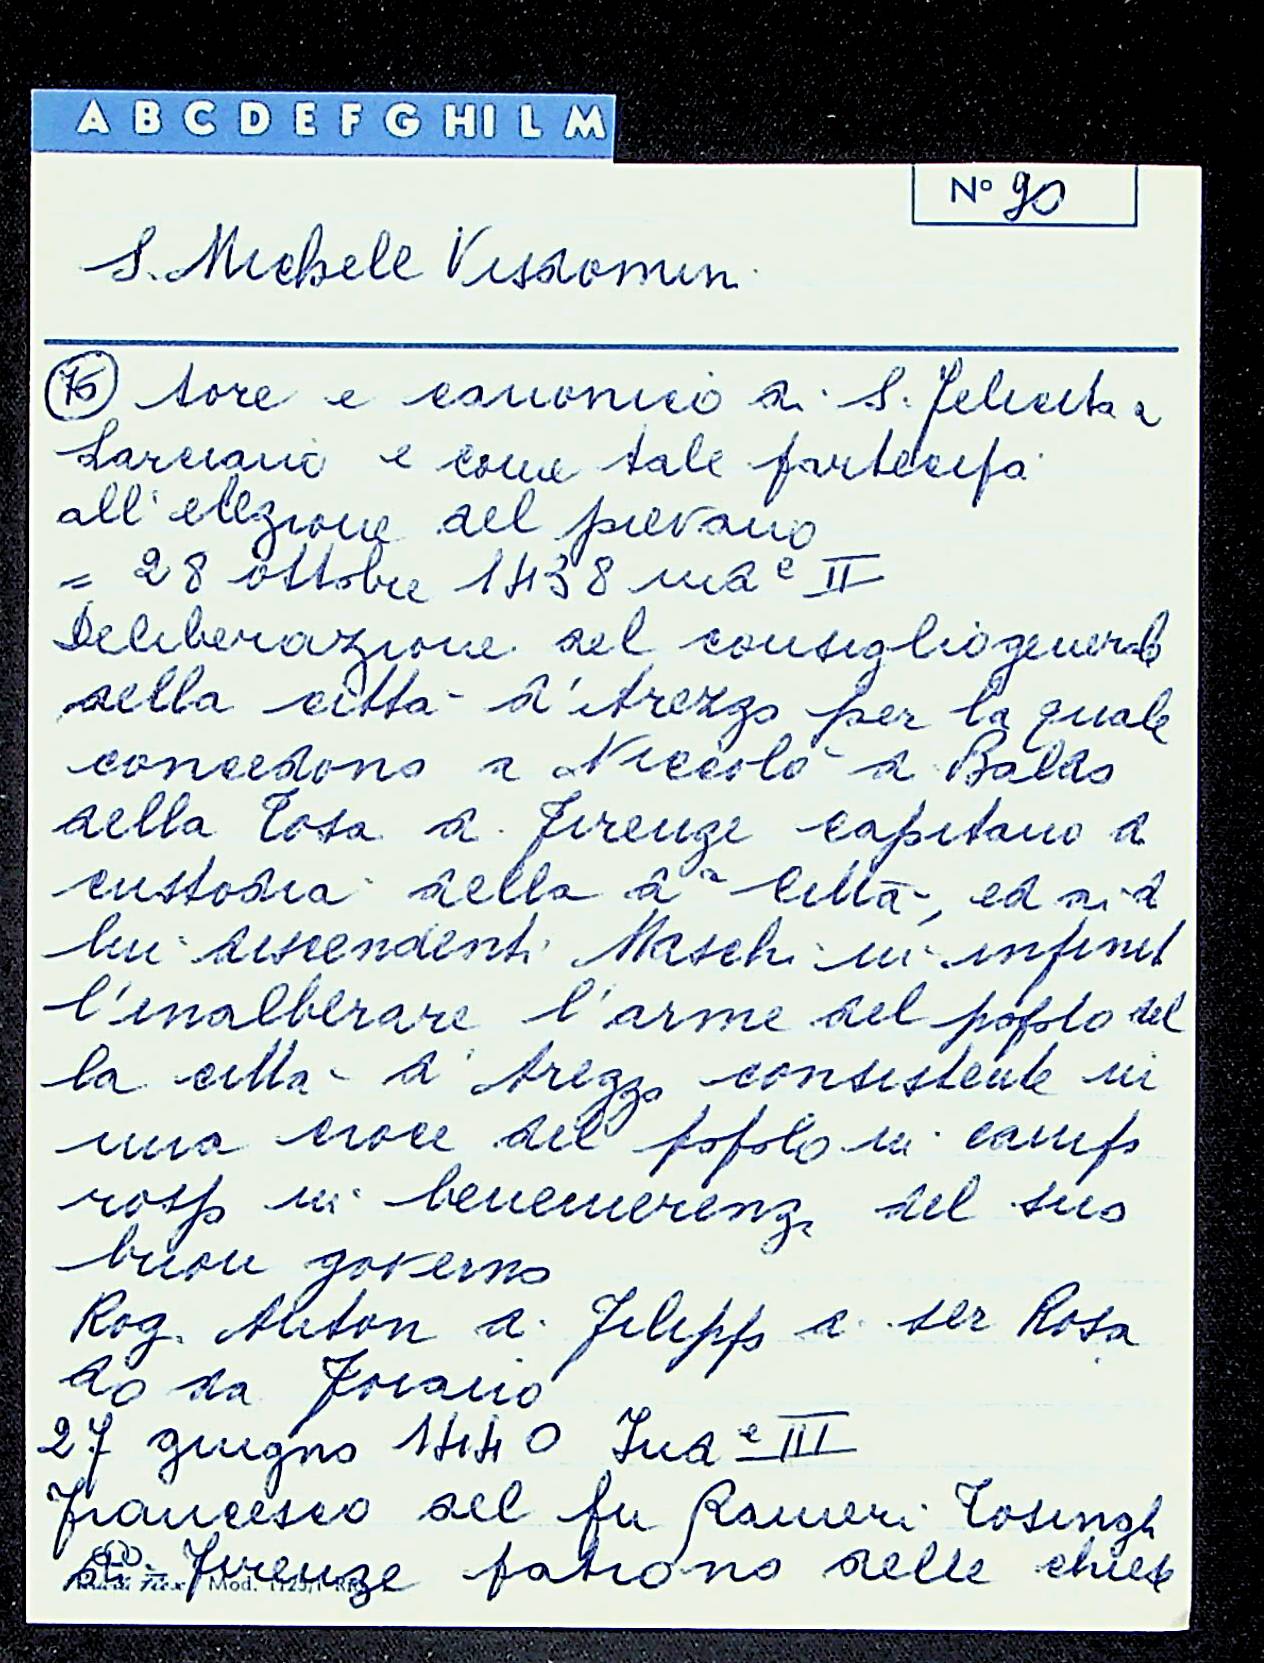 A B C D E F G H I L M
N° 90
S. Michele Visdomin.
75 tore e canonico di S. Felicita a
Larciano e come tale partecipa
all'elezione del pievano
= 28 ottobre 1438 indᵉ II
Deliberazione del consiglio generale
della città d'Arezzo per la quale
concedono a Niccolò di Baldo
della Tosa di Firenze capitano di
custodia della dᵃ città, ed ai di
lui discendenti Maschi in infinit
l'inalberare l'arme del popolo del
la città d'Arezzo consistente in
una croce del popolo in campo
rosso in benemerenza del suo
buon governo
Rog. Anton di Filippo di ser Rosa
do da
27 giugno 1440 Indᵉ III
Francesco del fu Ranieri Tosingh
di Firenze patrono delle chiese
Mod. 1125/1 RR